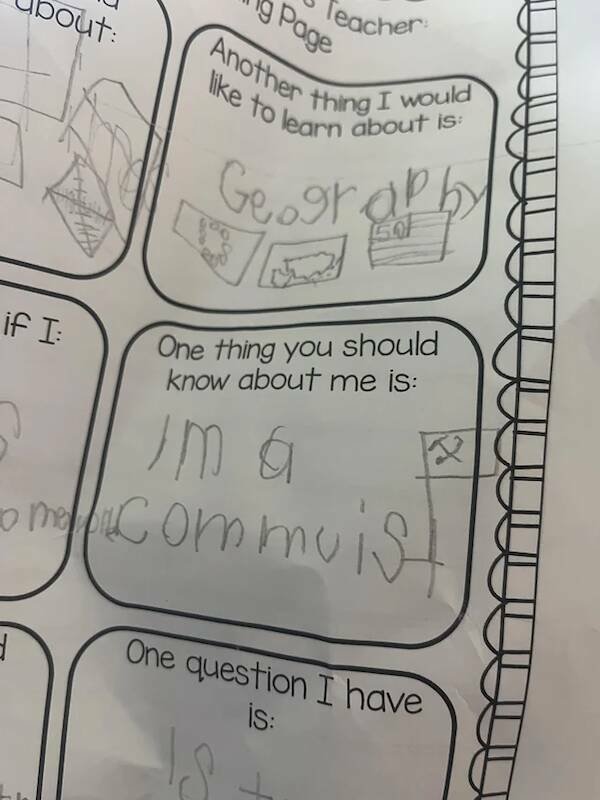 about:
ng Page
Teacher:
Another thing I would
like to learn about is:
Geography
50
if I:
One thing you should
know about me is:
Im a
Commuist
One question I have
is:
Is